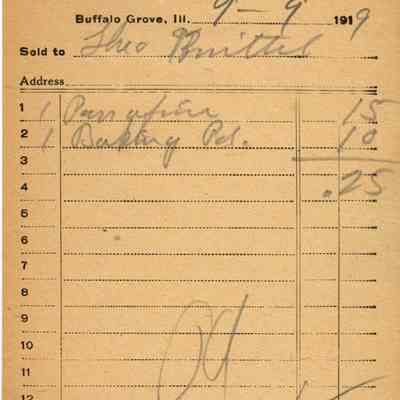 Buffalo Grove, Ill. 9-9 1919
Sold to Theo Knittel
Address
1 1 Parrafine 15
2 1 Baking Pd. 10
3
4 .25
5
6
7
8
9
10
11
12